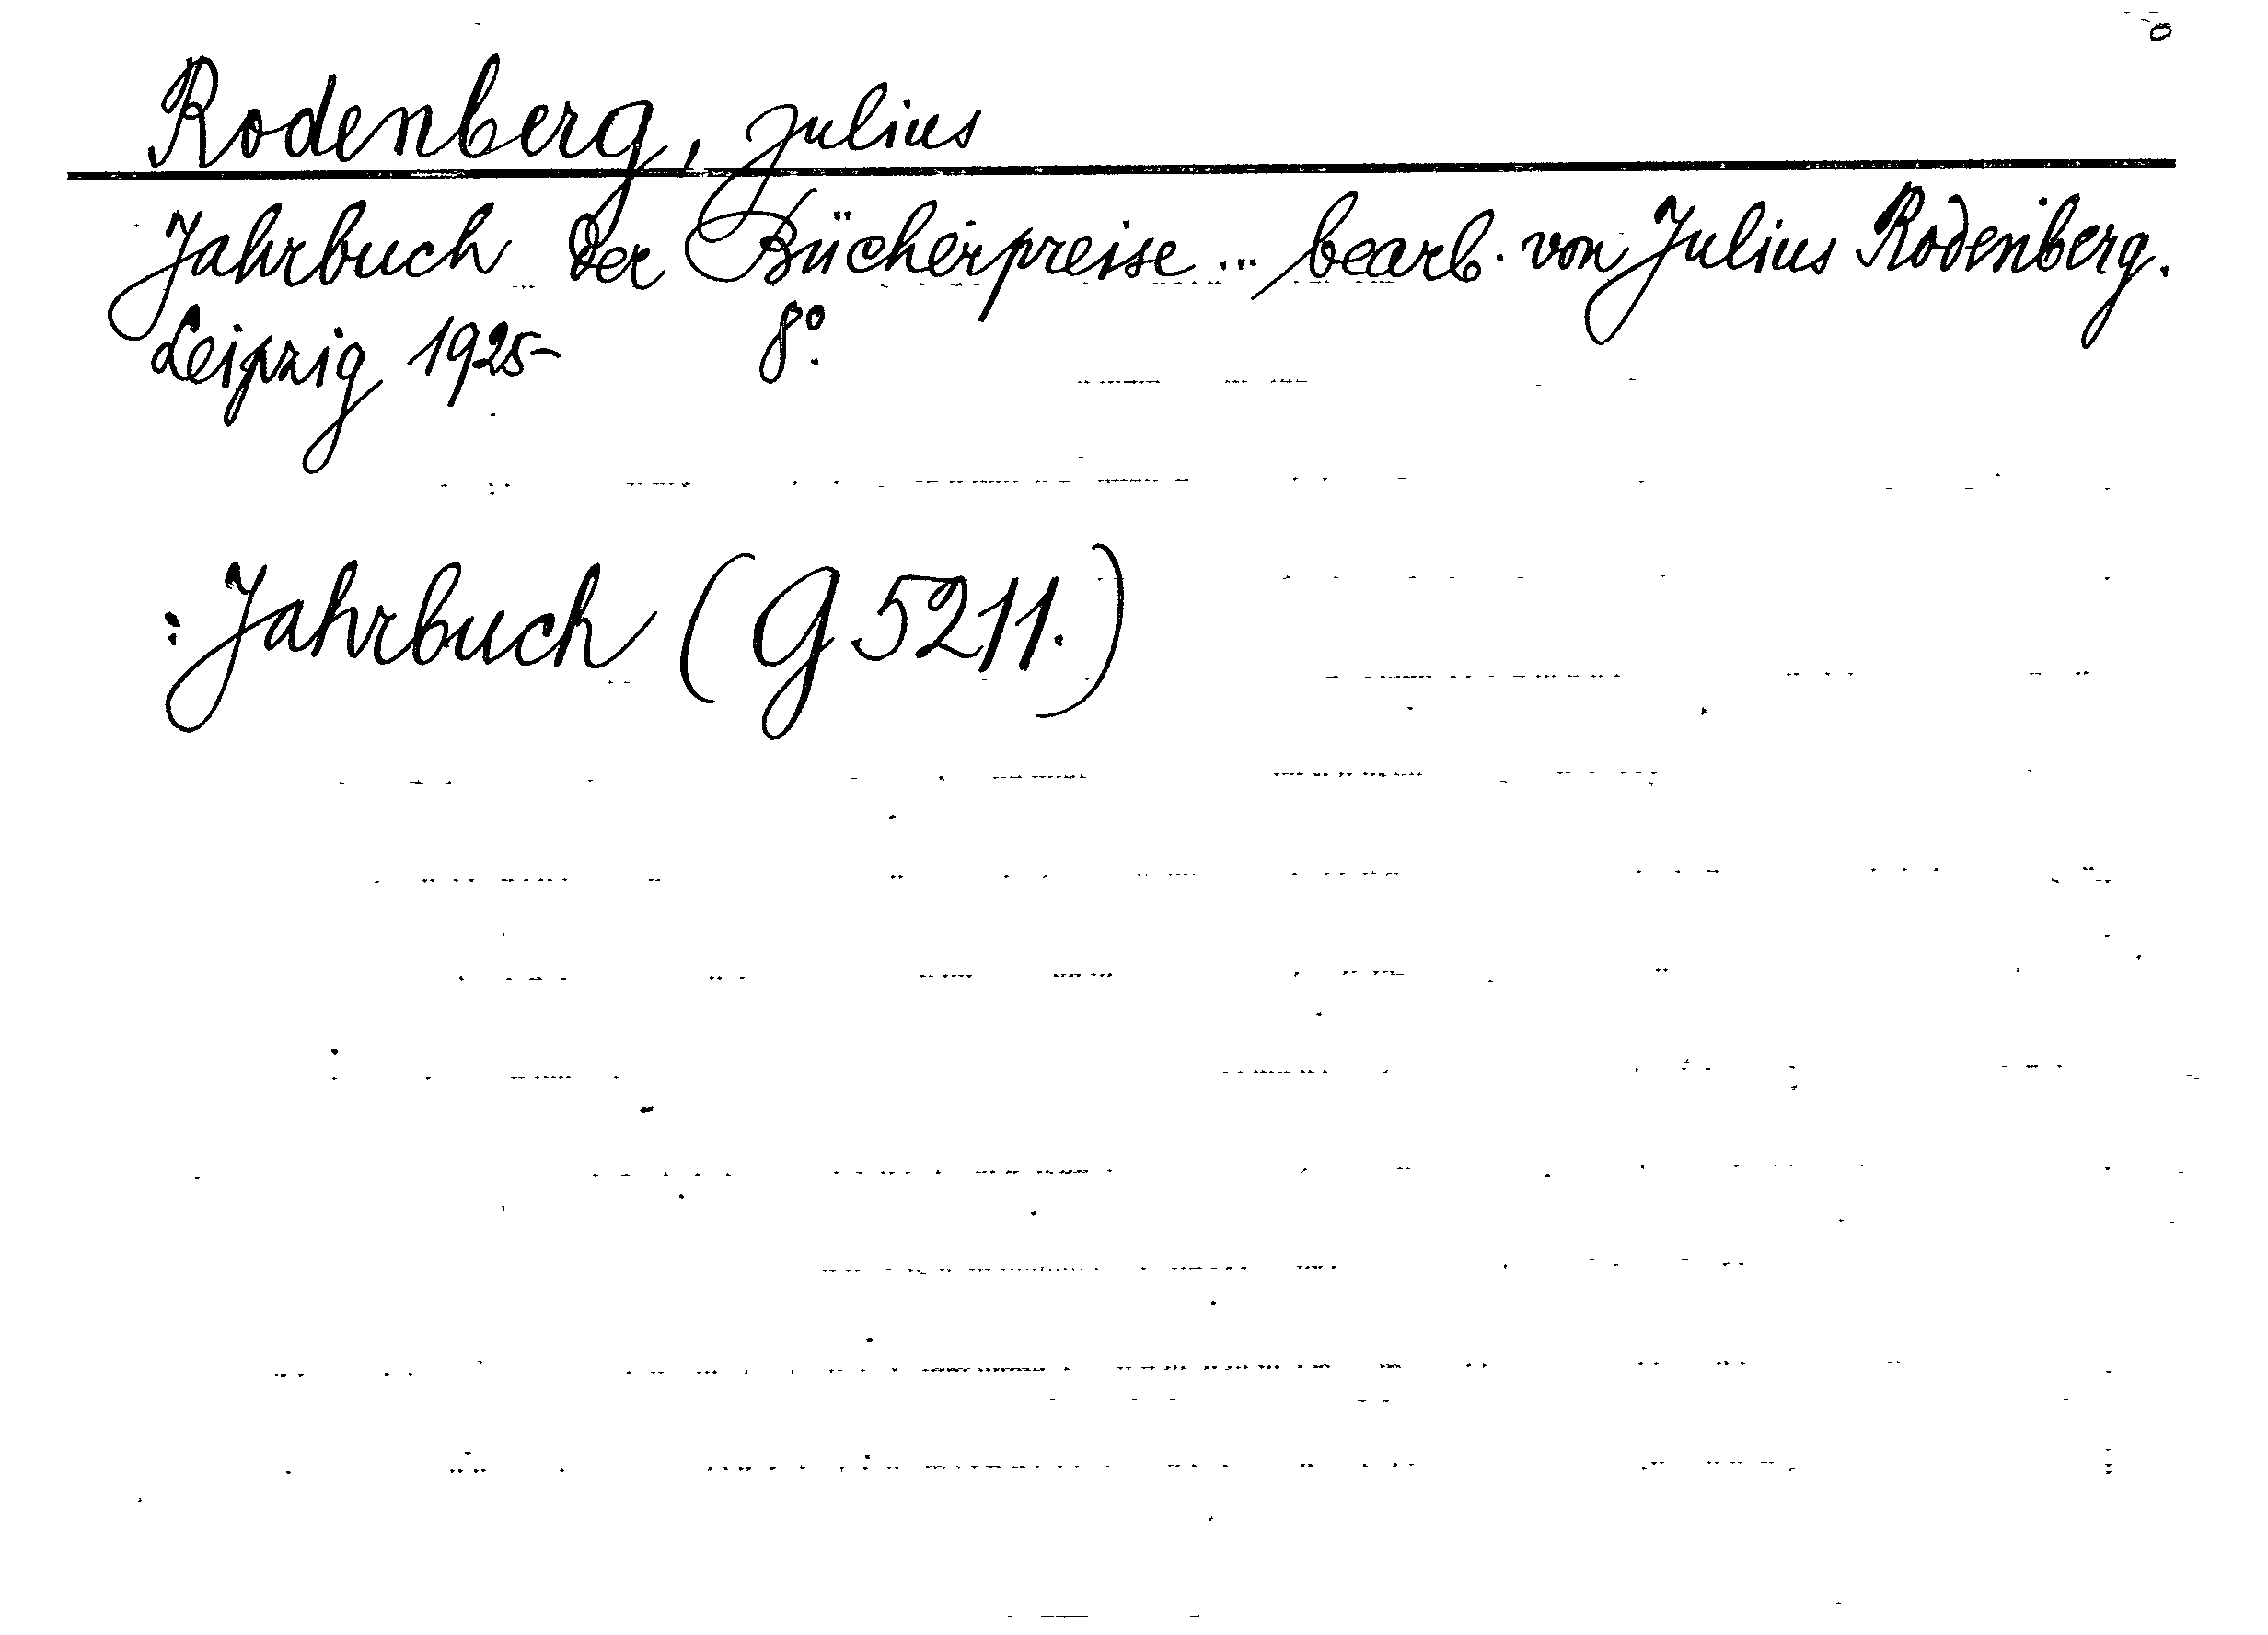 Rodenberg, Julius
Jahrbuch der Bücherpreise ... bearb. von Julius Rodenberg.
Leipzig 1925- 8°.
: Jahrbuch (G 5211.)